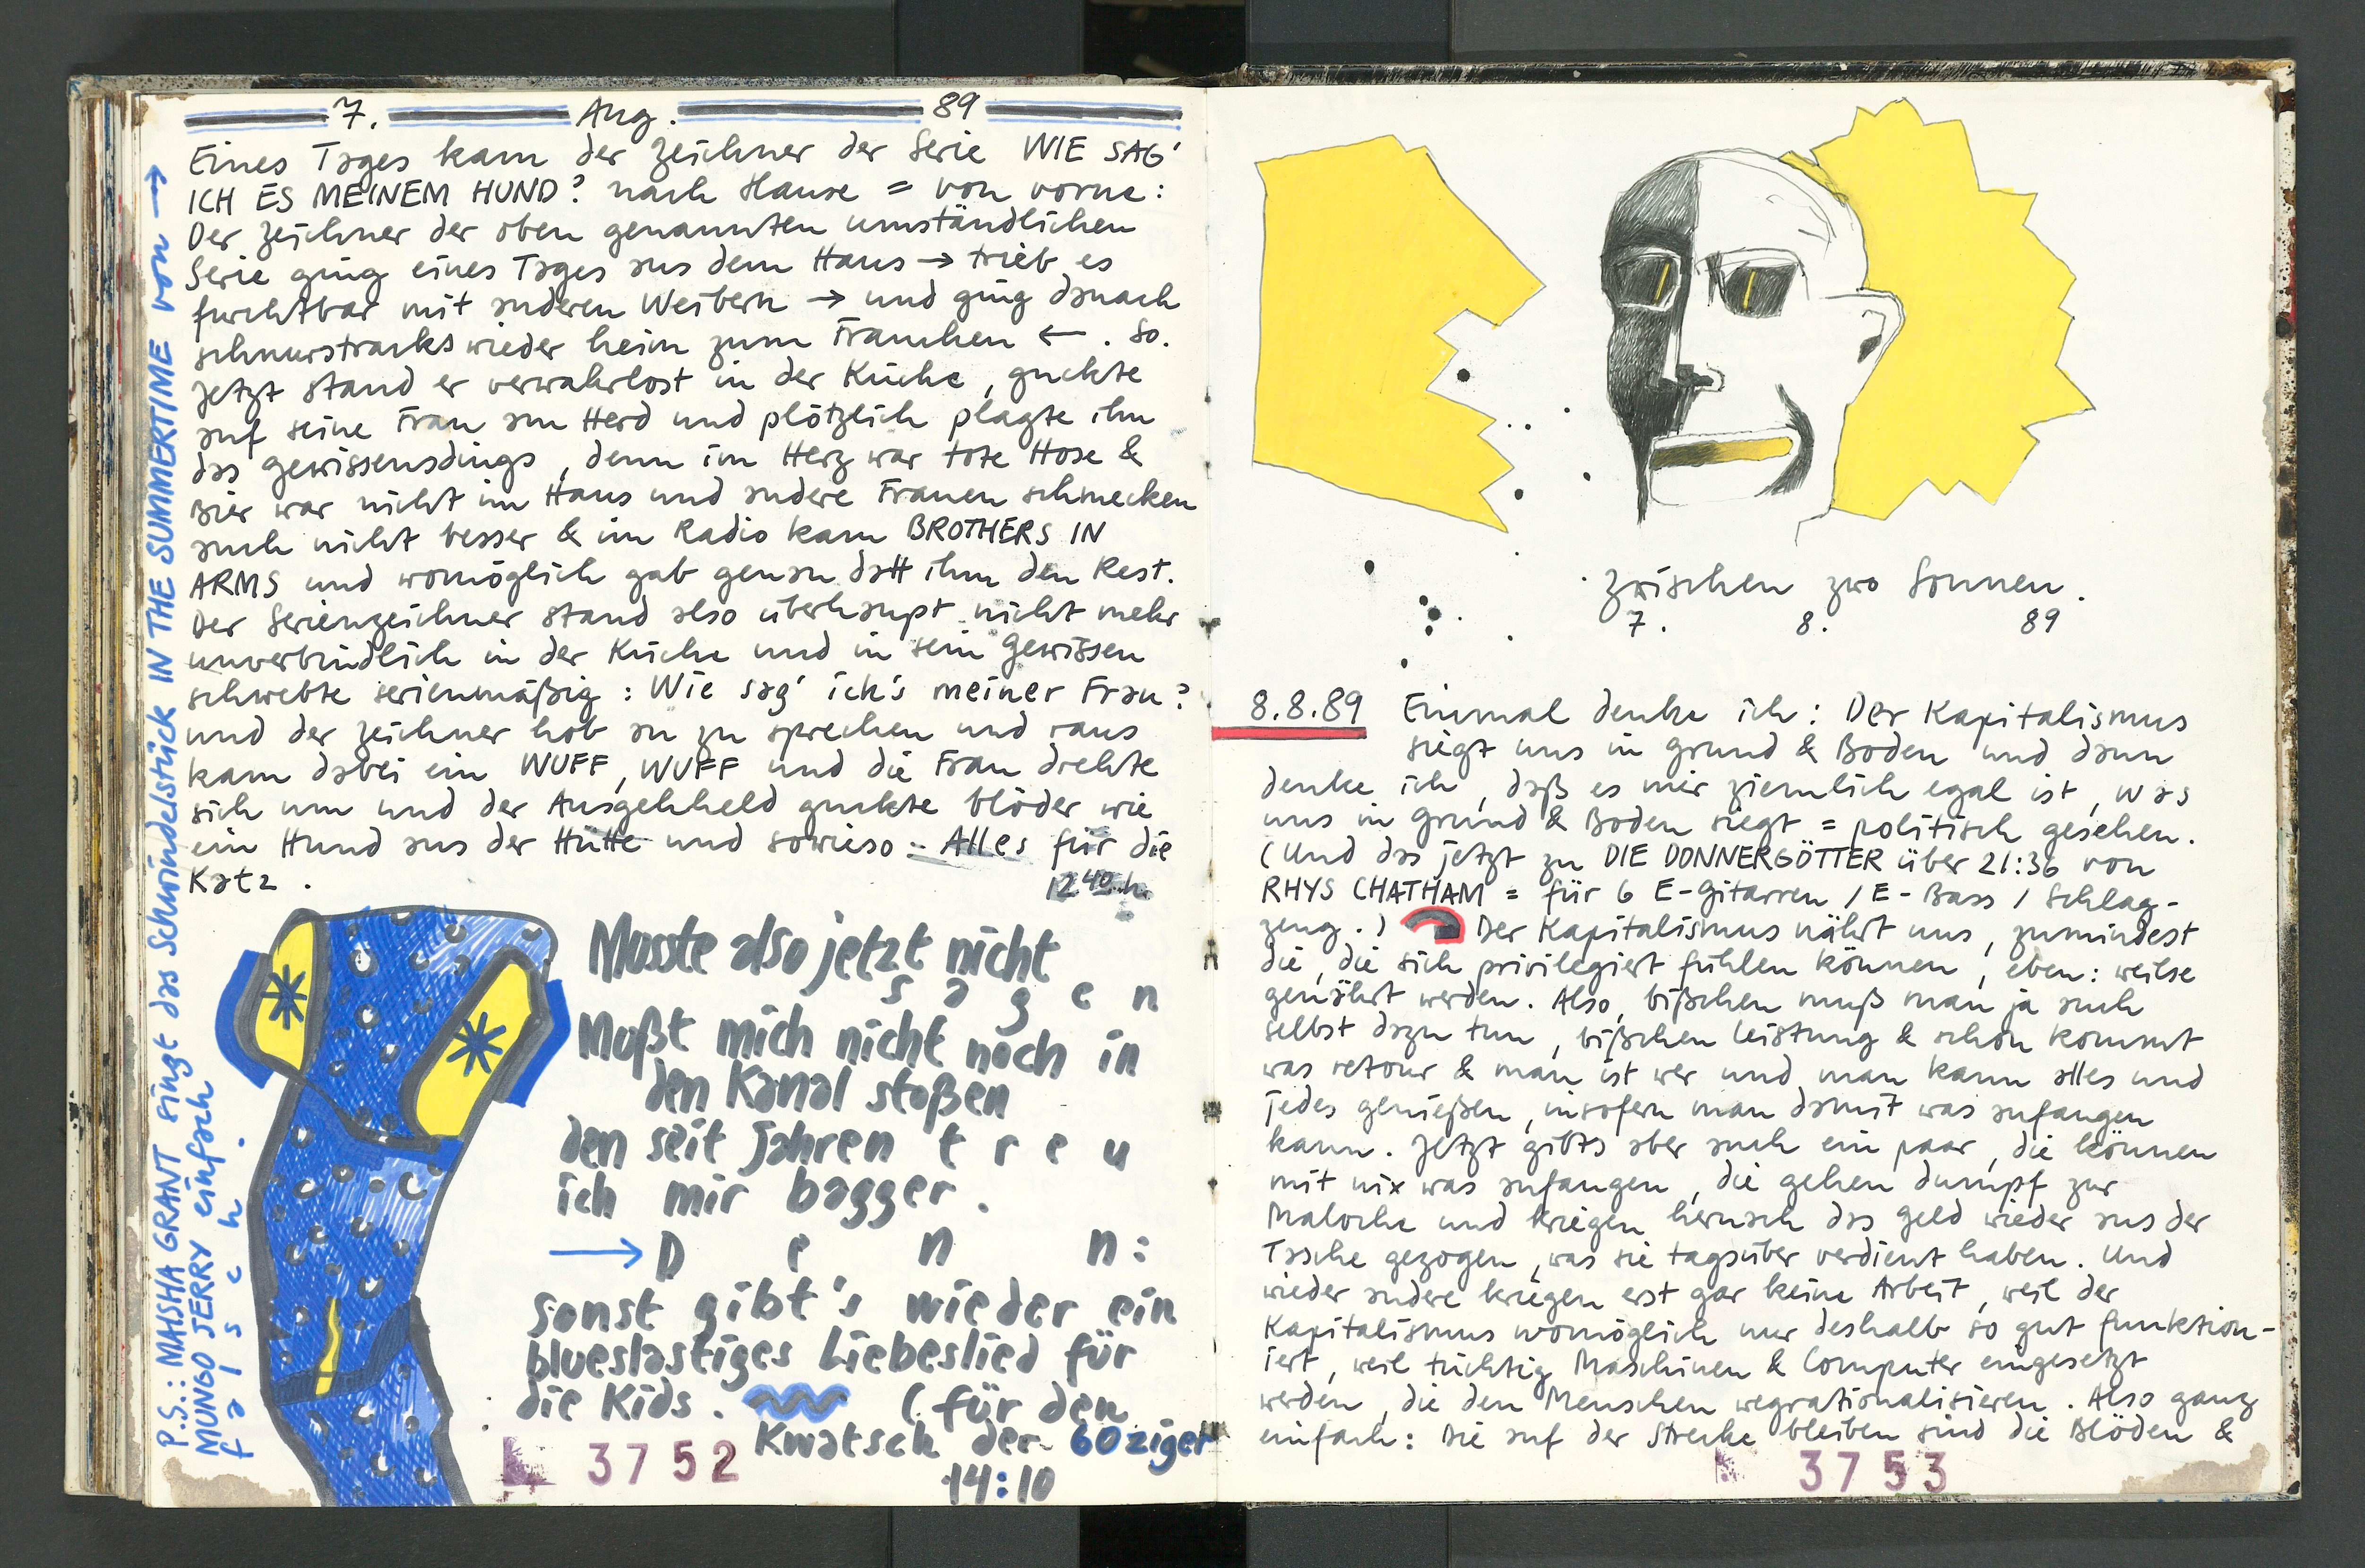 7. Aug. 89
Eines Tages kam der Zeichner der Serie WIE SAG'
ICH ES MEINEM HUND? nach Hause = von vorne:
Der Zeichner der oben genannten umständlichen
Serie ging eines Tages aus dem Haus → trieb es
furchtbar mit anderen Weibern → und ging danach
schnurstracks wieder heim zum Frauchen ← . So.
Jetzt stand er verwahrlost in der Küche, guckte
auf seine Frau am Herd und plötzlich plagte ihn
das Gewissensdings, denn im Herz war tote Hose &
Bier war nicht im Haus und andere Frauen schmecken
auch nicht besser & im Radio kam BROTHERS IN
ARMS und womöglich gab genau datt ihm den Rest.
Der Serienzeichner stand also überhaupt nicht mehr
unverbindlich in der Küche und in sein Gewissen
schwebte serienmäßig: Wie sag' ich's meiner Frau?
und der Zeichner hob an zu sprechen und raus
kam dabei ein WUFF, WUFF und die Frau drehte
sich um und der Ausgehheld guckte blöder wie
ein Hund aus der Hütte und sowieso: Alles für die
Katz.
12 40 h.
P.S.: MAISHA GRANT singt das Schwindelstück IN THE SUMMERTIME von →
MUNGO JERRY einfach
falsch.
Musste also jetzt nicht
sagen
Mußt mich nicht noch in
den Kanal stoßen
den seit Jahren treu
ich mir bagger.
→ Denn:
Sonst gibt's wieder ein
blueslastiges Liebeslied für
die Kids. (für den
Kwatsch der 60ziger
14:10
3752
zwischen zwo Sonnen.
7. 8. 89
8.8.89 Einmal denke ich: Der Kapitalismus
siegt uns in Grund & Boden und dann
denke ich, daß es mir ziemlich egal ist, was
uns in Grund & Boden siegt = politisch gesehen.
(Und das jetzt zu DIE DONNERGÖTTER über 21:36 von
RHYS CHATHAM = für 6 E-Gitarren / E-Bass / Schlag-
zeug.) Der Kapitalismus nährt uns, zumindest
die, die sich privilegiert fühlen können, eben: weilse
genährt werden. Also, bißchen muß man ja auch
selbst dazu tun, bißchen Leistung & schon kommt
was retour & man ist wer und man kann alles und
jedes genießen, insofern man damit was anfangen
kann. Jetzt gibts aber auch ein paar, die können
mit nix was anfangen, die gehen dumpf zur
Maloche und kriegen hernach das Geld wieder aus der
Tasche gezogen, was sie tagsüber verdient haben. Und
wieder andere kriegen erst gar keine Arbeit, weil der
Kapitalismus womöglich nur deshalb so gut funktion-
iert, weil tüchtig Maschinen & Computer eingesetzt
werden, die den Menschen wegrationalisieren. Also ganz
einfach: Die auf der Strecke bleiben sind die Blöden &
3753